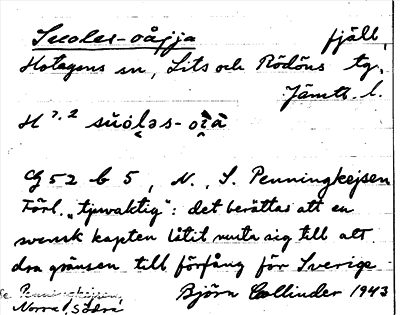 Suoles-oåjja fjäll,
Hotagens sn, Lits och Rödöns tg,
Jämtl. l.
H 1.2 sŭoḷəs-
Cg 52 b 5, N., S. Penningkejsen
Förl. "tjuvaktig": det berättas att en
svensk kapten låtit muta sig till att
dra gränsen till förfång för Sverige
Björn Collinder 1943
Se Penningkejsen,
Norra, Södra